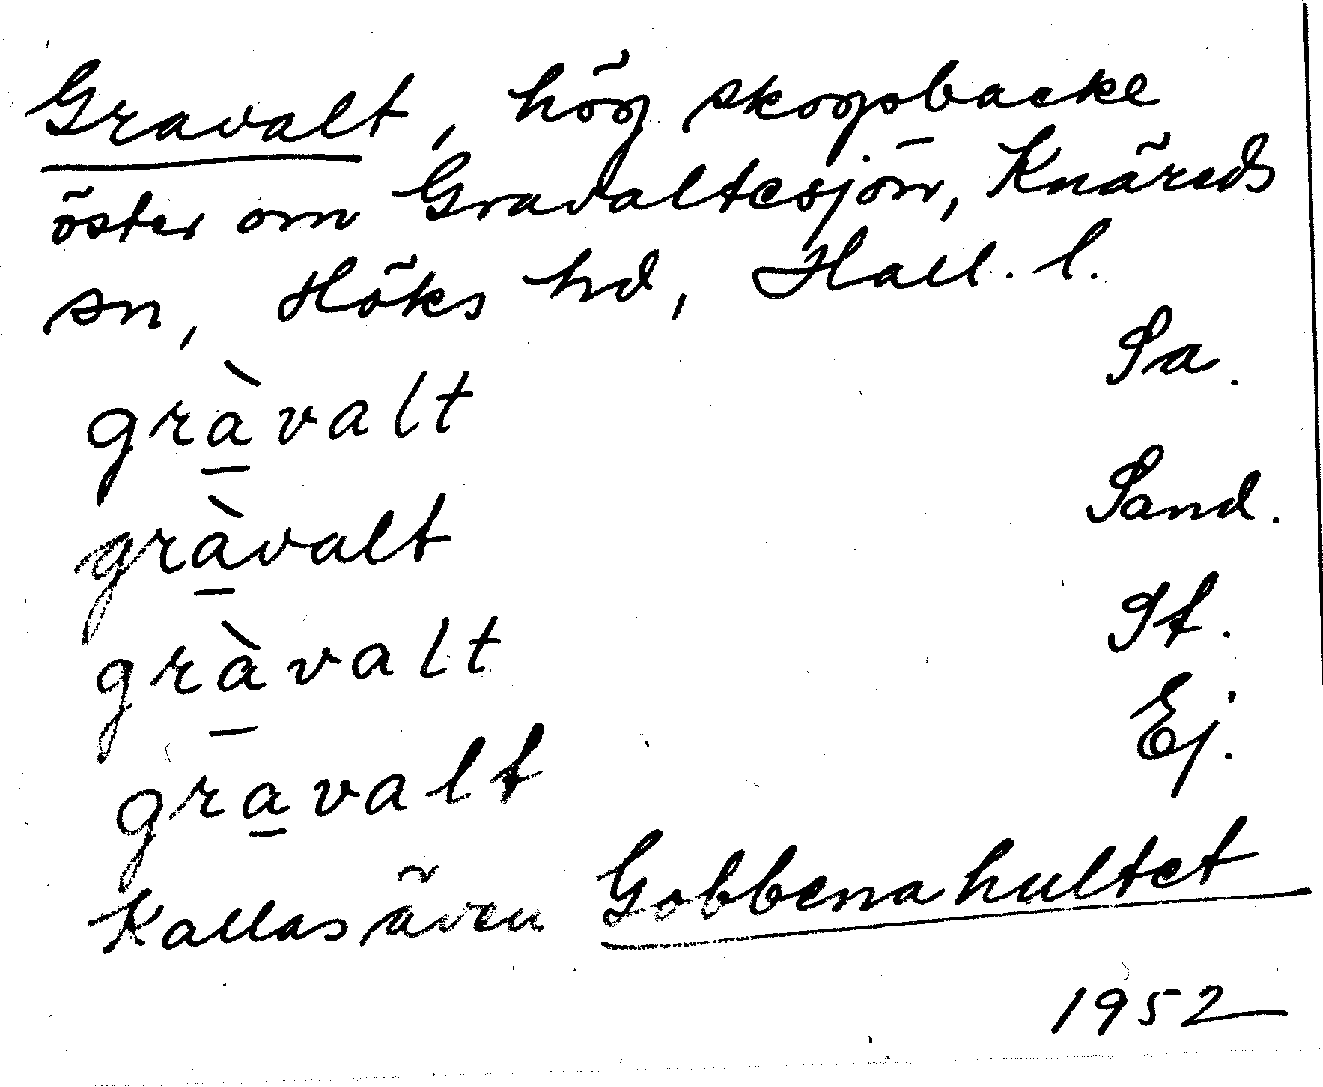 Gravalt, hög skogsbacke
öster om Gravaltesjön, Knäreds
sn, Höks hd, Hall. l.
Sa.
grà̱valt
Sand.
grà̱valt
St.
grà̱valt
Ej.
gra̱valt
Kallas även Gobbenahultet
1952